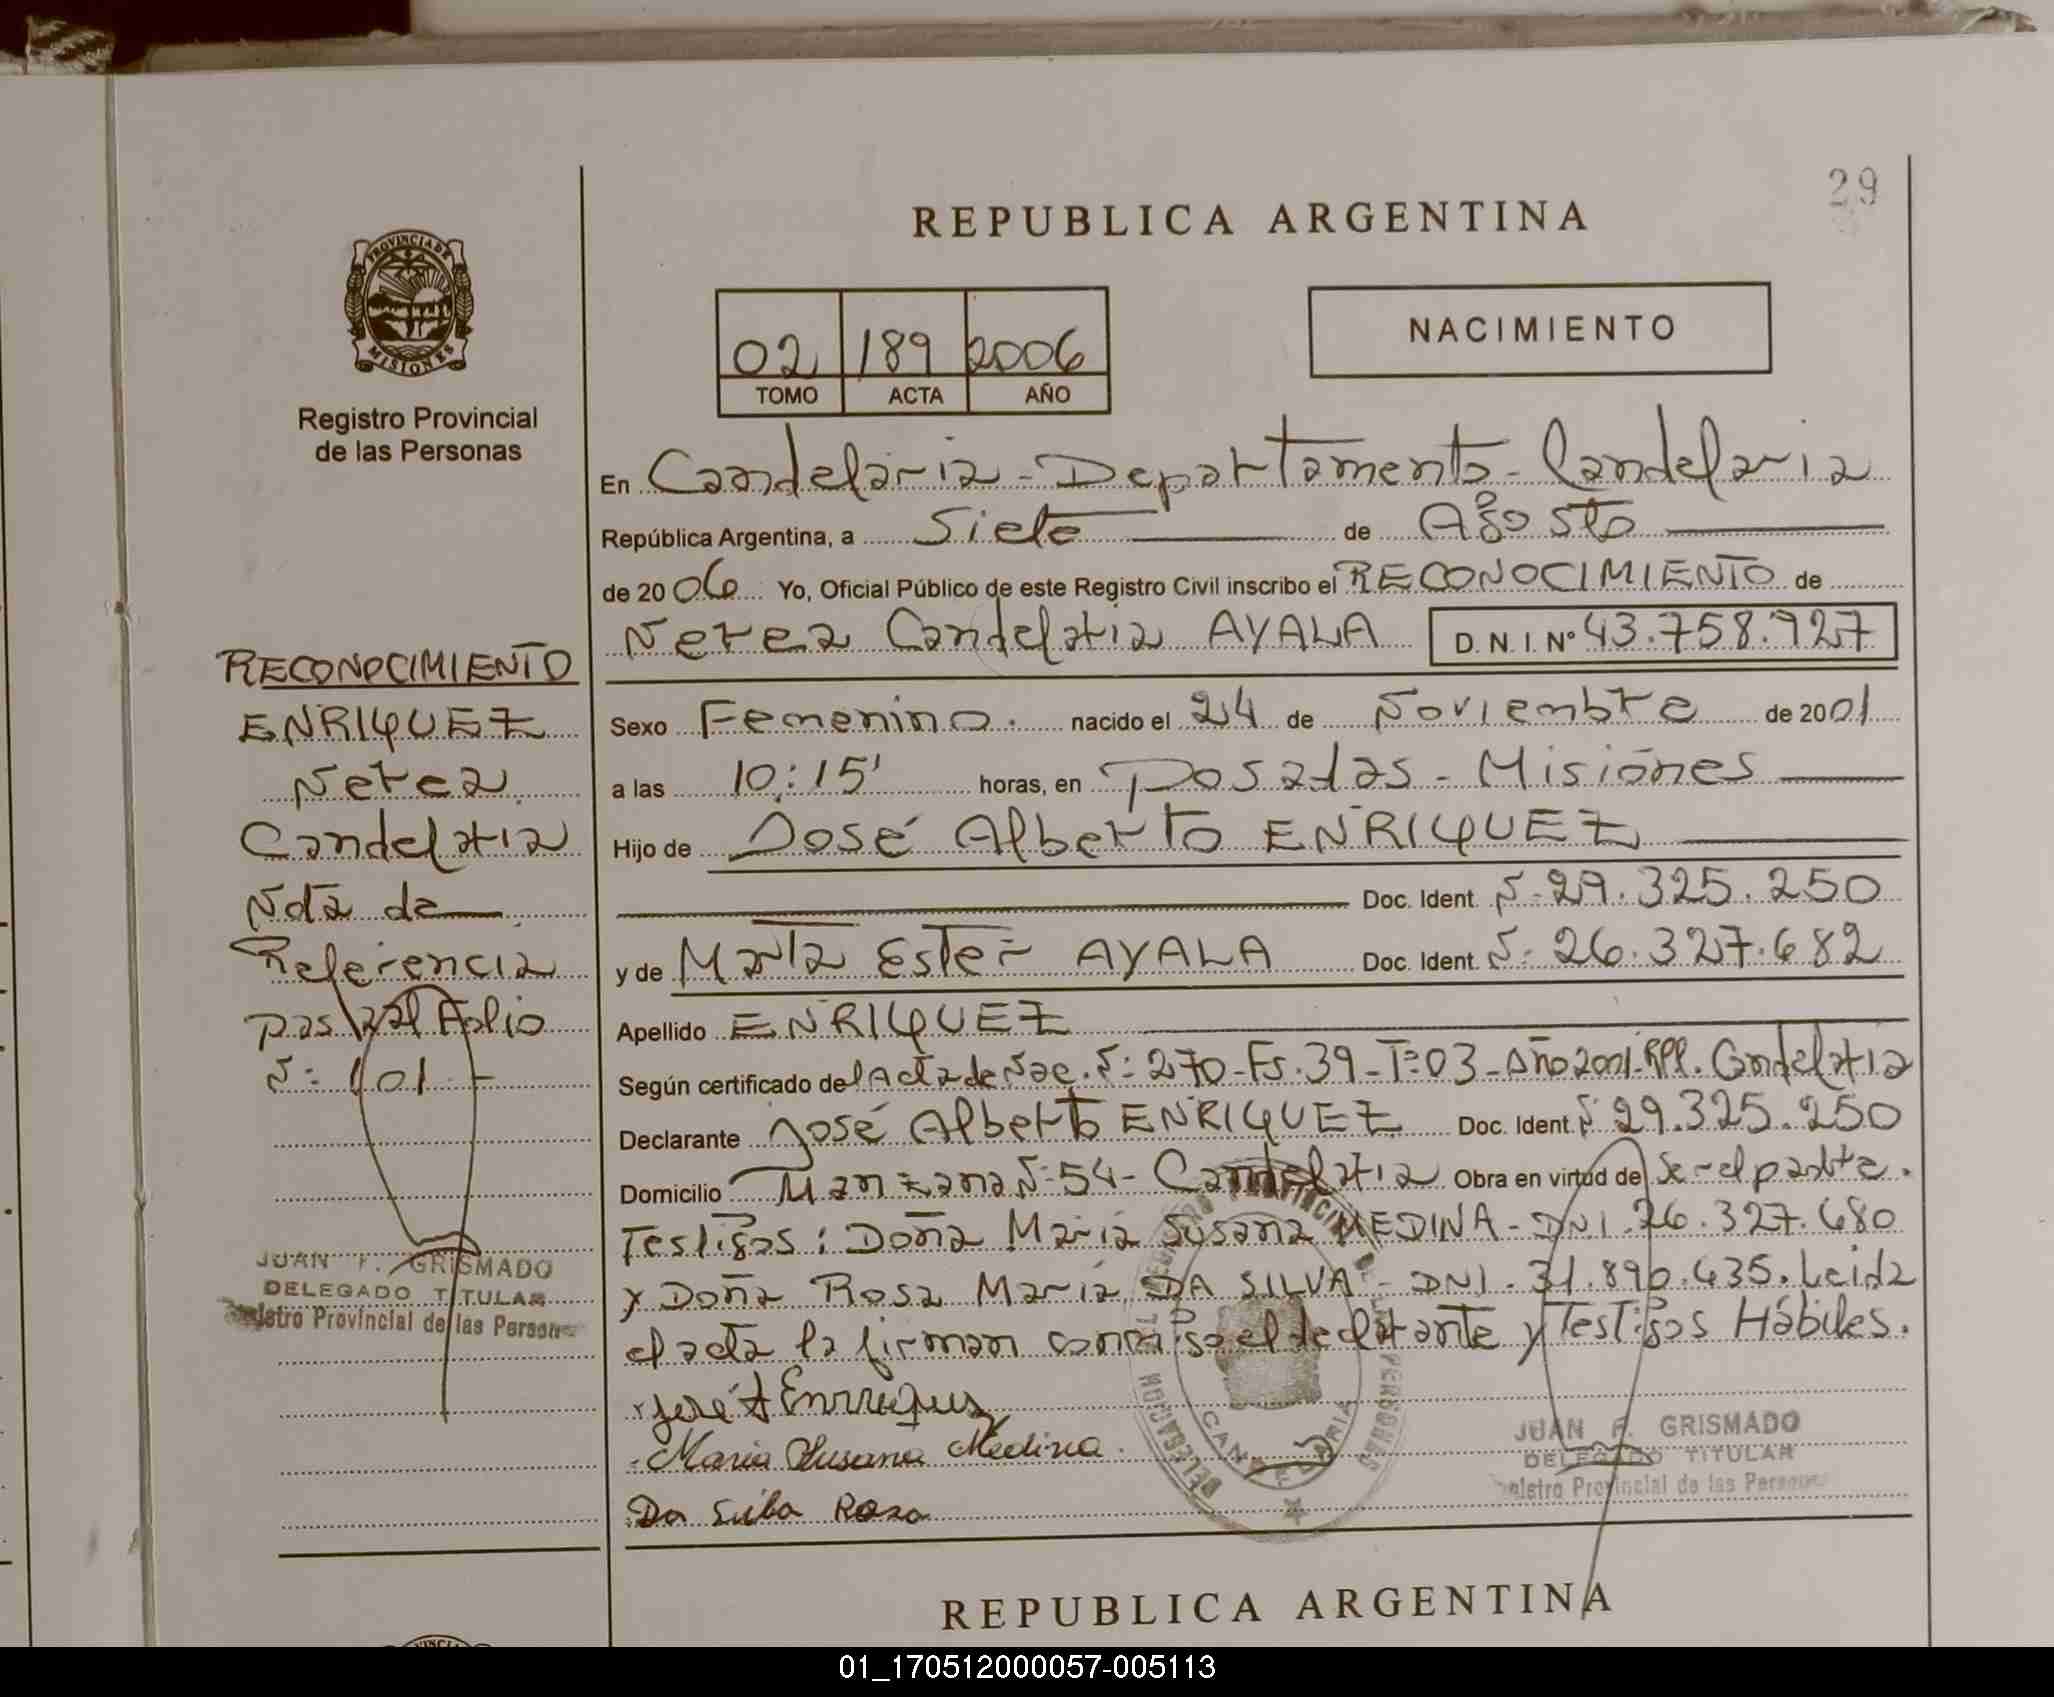 29
REPUBLICA ARGENTINA
PROVINCIA DE
MISIONES
Registro Provincial
de las Personas
02 189 2006
TOMO ACTA AÑO
NACIMIENTO
En Candelaria - Departamento - Candelaria
República Argentina, a Siete de Agosto
de 2006 Yo, Oficial Público de este Registro Civil inscribo el RECONOCIMIENTO de
Nerea Candelaria AYALA D.N.I. Nº 43.758.927
Sexo Femenino. nacido el 24 de Noviembre de 2001
a las 10:15' horas, en Posadas - Misiónes
Hijo de José Alberto ENRIQUEZ
Doc. Ident. N- 29.325.250
y de Marta Ester AYALA Doc. Ident. N: 26.327.682
Apellido ENRIQUEZ
Según certificado del Acta de Nac. N: 270 - Fs. 39 - Tº 03 - Año 2001 - RPP. Candelaria
Declarante José Alberto ENRIQUEZ Doc. Ident. N 29.325.250
Domicilio Manzana N: 54 - Candelaria Obra en virtud de Ser el padre.
Testigos: Doña María Susana MEDINA - DNI. 26.327.680
y Doña Rosa María DA SILVA - DNI. 31.890.435. Leida
el acta la firman conmigo el declarante y Testigos Hábiles.
José A Enrriquez
Maria Susana Medina.
Da Silba Rosa
JUAN F. GRISMADO
DELEGADO TITULAR
Registro Provincial de las Personas
CANDELARIA
DELEGACION
RECONOCIMIENTO
ENRIQUEZ
Nerea
Candelaria
Nota de
Referencia
pasa al Folio
N: 101 -
JUAN F. GRISMADO
DELEGADO TITULAR
Registro Provincial de las Personas
REPUBLICA ARGENTINA
01_170512000057-005113